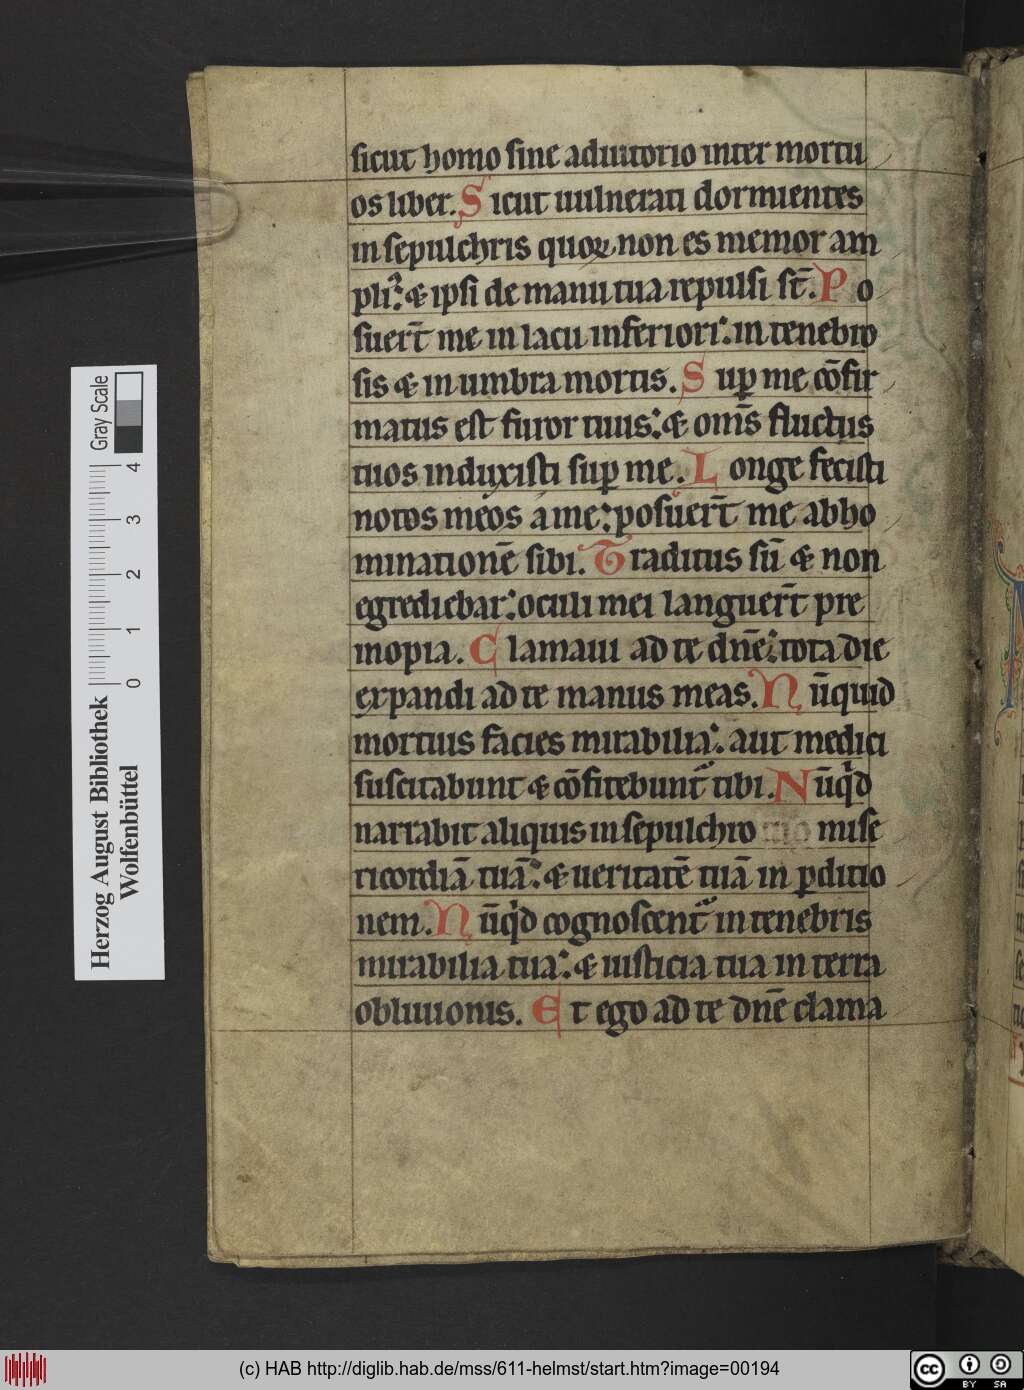 sicut homo sine adiutorio inter mortu
os liber. Sicut uulnerati dormientes
in sepulchris quoꝝ non es memor am
pliꝰ: & ipsi de manu tua repulsi st̄. Po
suer̄t me in lacu inferiori: in tenebro
sis & in umbra mortis. Sup̱ me cōfir
matus est furor tuus: & om̄s fluctus
tuos induxisti sup̱ me. Longe fecisti
notos meos a me: posuer̄t me abho
minationē sibi. Traditus sū & non
egrediebar: oculi mei languer̄t pre
inopia. Clamaui ad te dn̄e: tota die
expandi ad te manus meas. Nūquid
mortuis facies mirabilia: aut medici
suscitabunt & cōfitebunt᷑ tibi. Nūqͥd
narrabit aliquis in sepulchro mise
ricordiā tuā: & ueritatē tuā in ꝑditio
nem. Nūqͥd cognoscent᷑ in tenebris
mirabilia tua: & iusticia tua in terra
obliuionis. Et ego ad te dn̄e clama
Herzog August Bibliothek
Wolfenbüttel
Gray Scale
0 1 2 3 4
(c) HAB http://diglib.hab.de/mss/611-helmst/start.htm?image=00194
cc BY SA